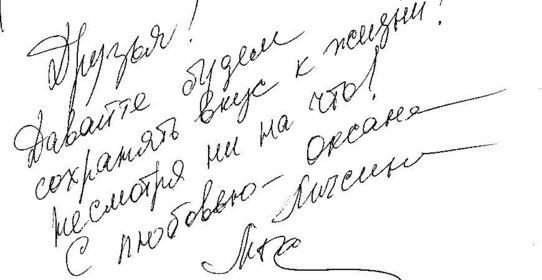 Друзья!
Давайте будем
сохранять вкус к жизни!
несмотря ни на что!
С любовью – Оксана